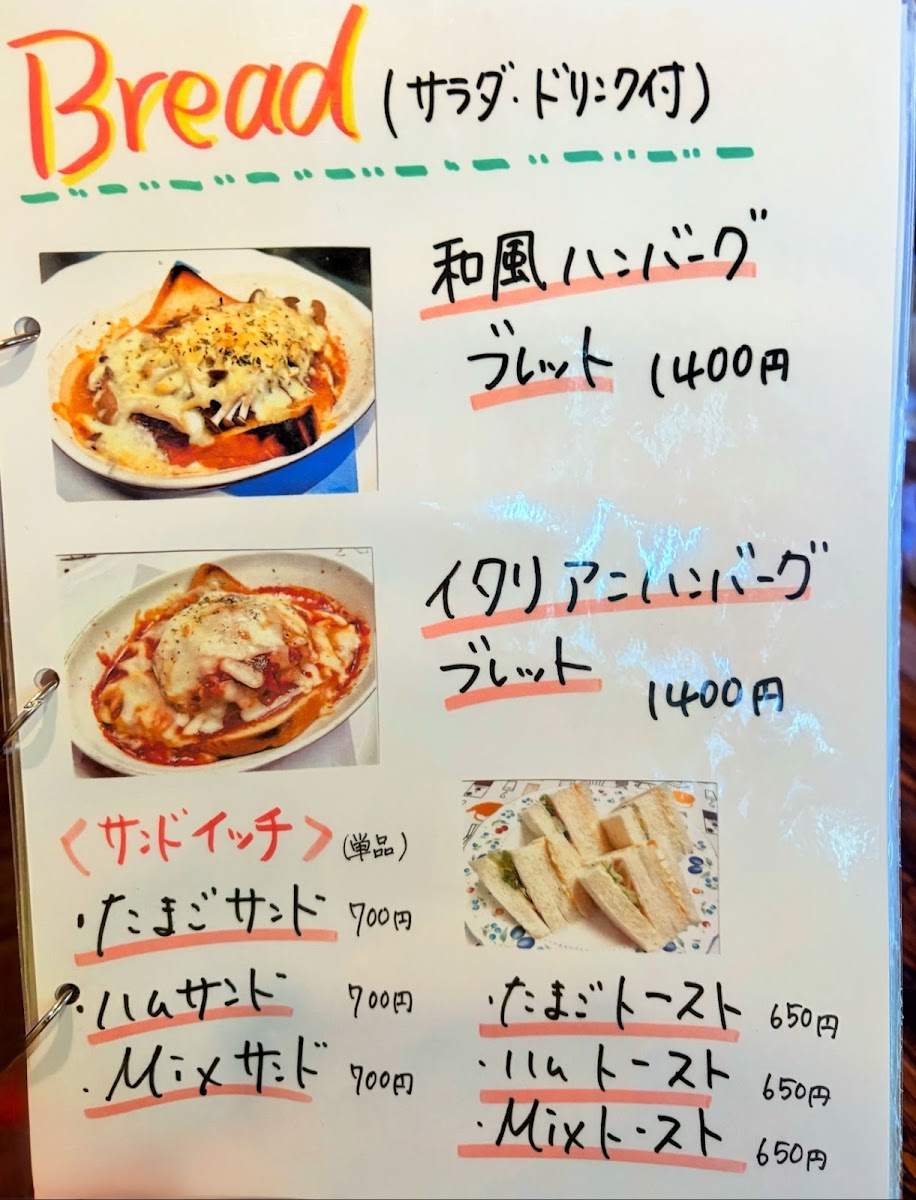 Bread (サラダ・ドリンク付)
和風ハンバーグ
ブレット 1400円
イタリアンハンバーグ
ブレット 1400円
<サンドイッチ> (単品)
・たまごサンド 700円
・ハムサンド 700円
・Mixサンド 700円
・たまごトースト 650円
・ハムトースト 650円
・Mixトースト 650円